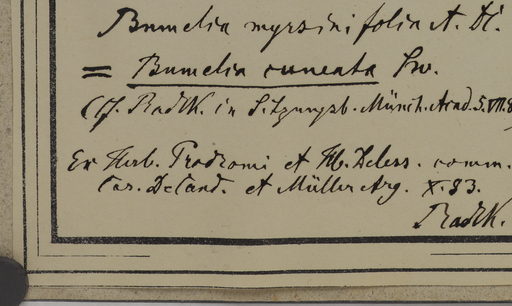 Bumelia myrsinifolia A. DC.
= Bumelia cuneata Sw.
(Cf. Radlk. in Sitzungsb. Münch. Acad. 5. VII. 8
Ex Herb. Prodromi et Hb. Deless. comm.
Cas. DeCand. et Müller Arg. X. 83.
Radlk.